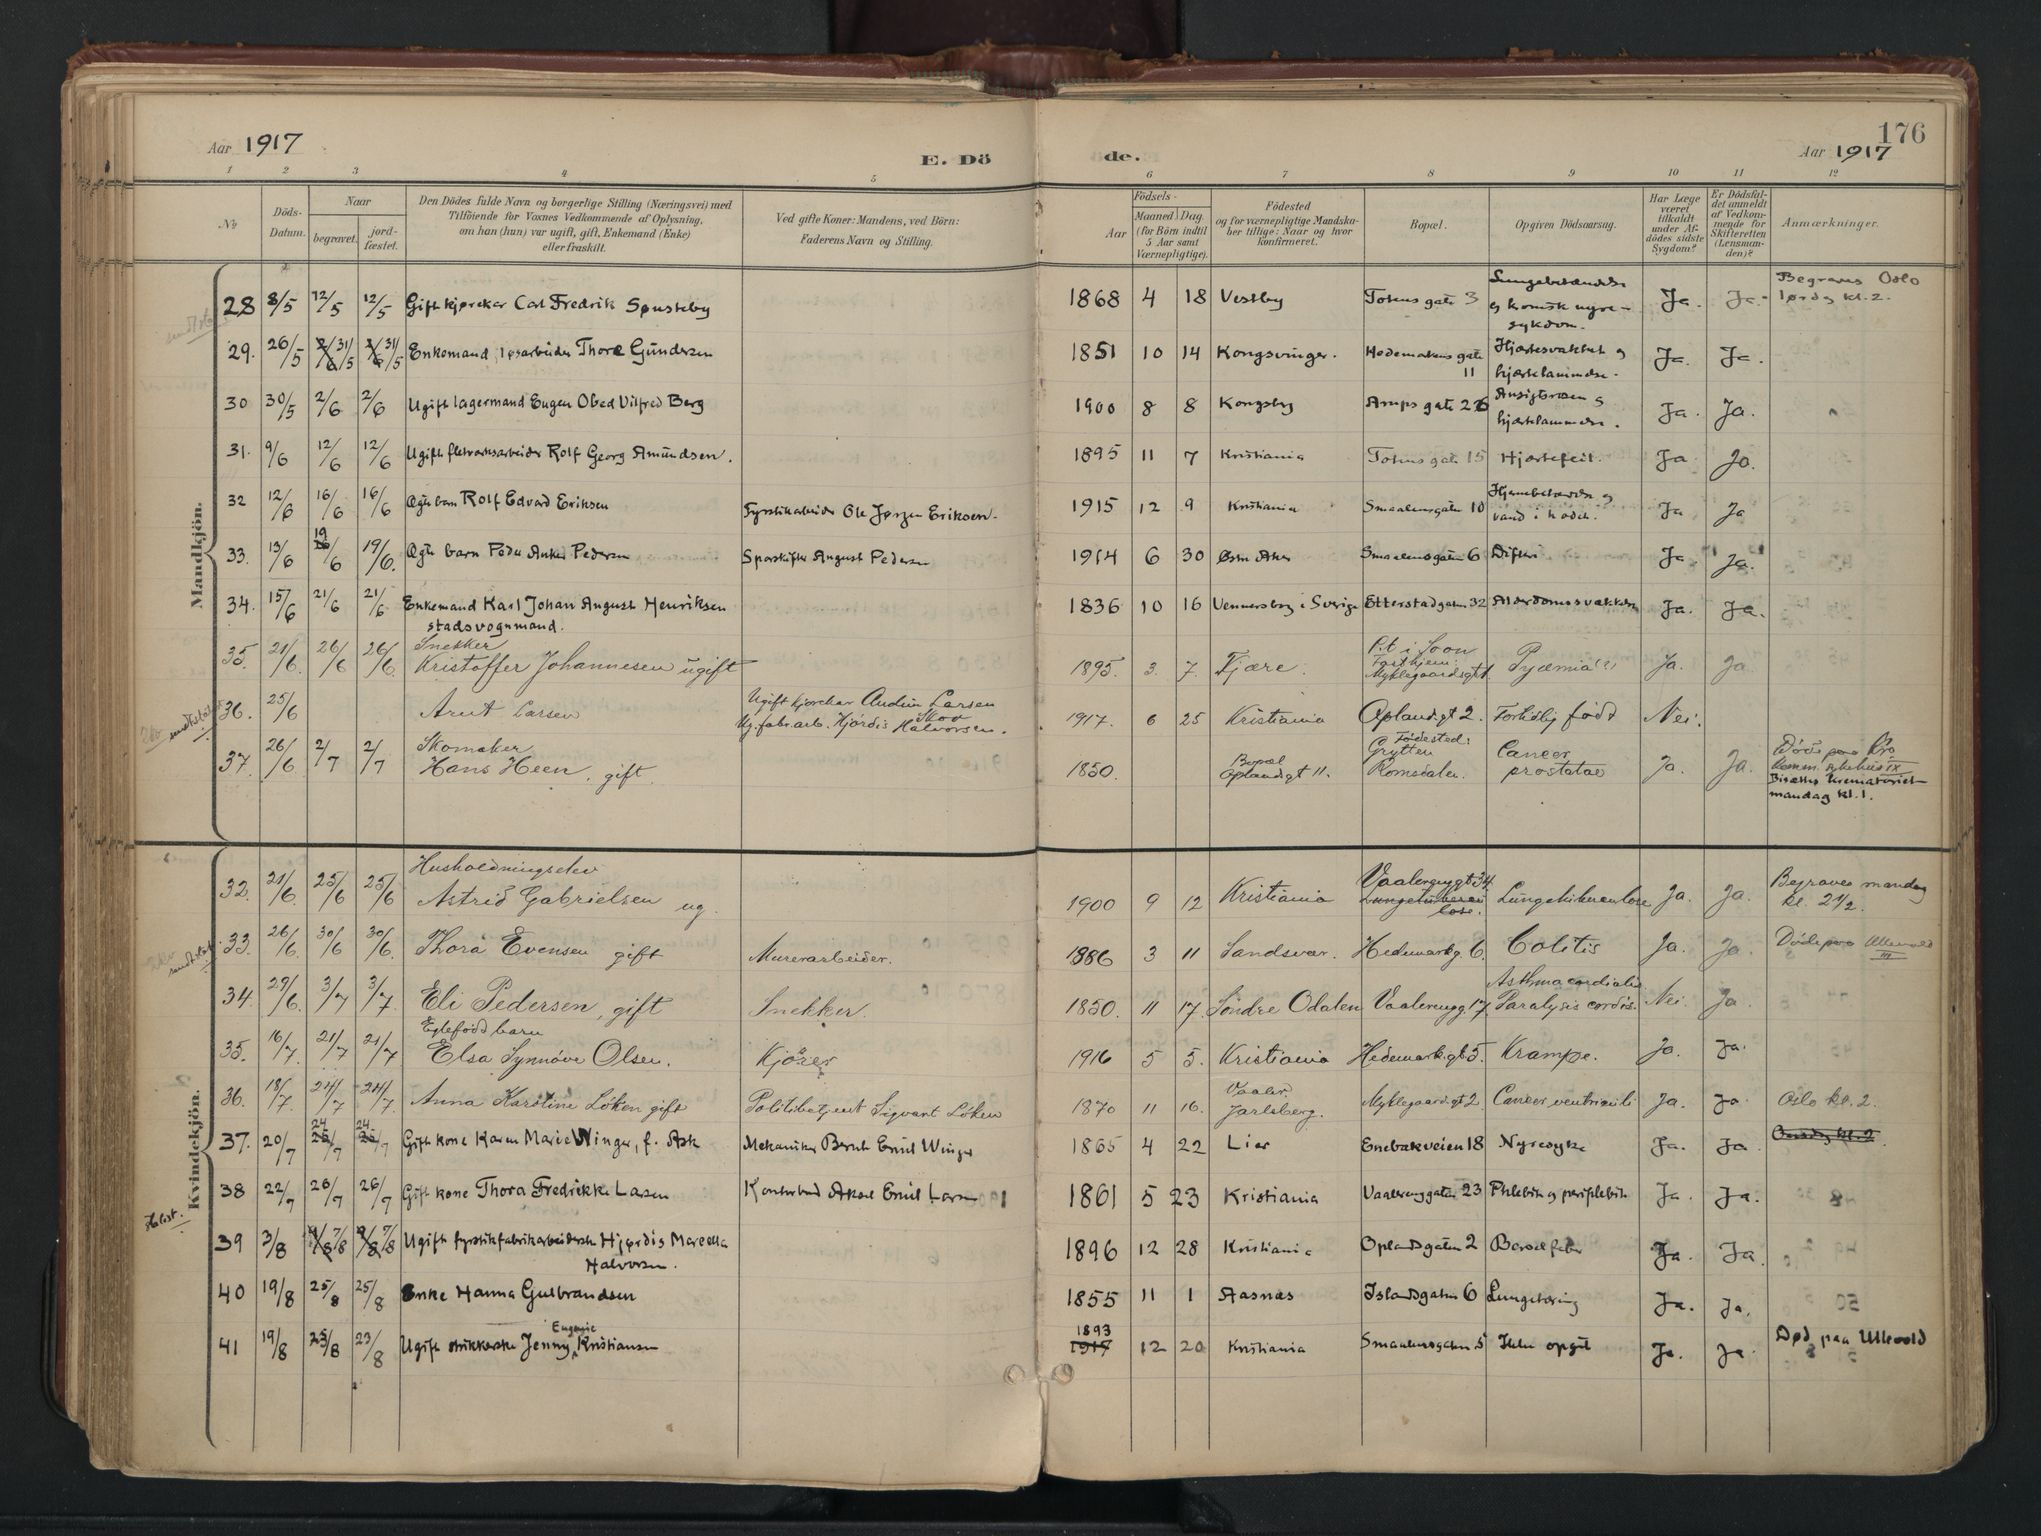 Aar 1917
E. Dö
de.
176
Aar 1917
1 2 3 4 5 6 7 8 9 10 11 12
No
Döds-Datum.
Naar
begravet.
jordfæstet.
Den Dödes fulde Navn og borgerlige Stilling (Næringsvei) med
Tilföiende for Voxnes Vedkommende af Oplysning,
om han (hun) var ugift, gift, Enkemand (Enke)
eller fraskilt.
Ved gifte Koner: Mandens, ved Börn:
Faderens Navn og Stilling.
Födsels-
Aar
Maaned Dag.
(for Börn indtil
5 Aar samt
Værnepligtige).
Födested
og for værnepligtige Mandska-
ber tillige: Naar og hvor
konfirmeret.
Bopæl.
Opgiven Dödsaarsag.
Har Læge
været
tilkaldt
under Af-
dödes sidste
Sygdom?
Er Dödsfal-
det anmeldt
af Vedkom-
mende for
Skifteretten
(Lensman-
den)?
Anmærkninger.
Mandkjön.
28 8/5 12/5 12/5 Gift kjørekar Carl Fredrik Sønsteby 1868 4 18 Vestby Totensgate 3 Lungebetændelse og kronisk nyresykdom. Ja. Ja. Begraves Oslo lørdag kl. 2.
29. 26/5 31/5 31/5 Enkemand, løsarbeider Thore Gundersen 1851 10 14 Kongsvinger. Hedemarkens gate 11 Hjertesvakhet og hjertelammelse. Ja. Ja.
30 30/5 2/6 2/6 Ugift lagermand Eugen Obed Vilfred Berg 1900 8 8 Kongsby gate Ansigtsrosen og hjertelammelse. Ja. Ja.
31. 9/6 12/6 12/6 Ugift Rolf Georg Amundsen. 1895 11 7 Kristiania Totens gate 15 Hjertefeil. Ja. Ja.
32 12/6 16/6 16/6 Ægte barn Rolf Edvard Eriksen Fyrstikarbeider Ole Jørgen Eriksen. 1915 12 9 Kristiania Smaalensgaten 10 Hjernebetændelse og vand i hodet. Ja Ja
33. 13/6 19/6 19/6. Ægte barn Peder Anker Pedersen Sporskifter August Pedersen 1914 6 30 Østre Aker Smaalensgaten 6 Difteri Ja Ja.
34. 15/6 21/6 21/6 Enkemand Karl Johan August Henriksen stadsvognmand. 1836 10 16 Vennersborg i Sverige Etterstadgaten 32 Alderdomssvakkelse Ja. Ja.
35. 21/6. 26/6 26/6. Snekker Kristoffer Johannesen ugift 1895. 3. 7. Fjære. P.t. i Soon Fast hjem: Myklegaardsgt 1 Pyæmia Ja. Ja.
36. 25/6 Arnt Larsen Ugift kjørekar Audun Larsen Skov Ug. fabr.arb. Hjördis Halvorsen. 1917. 6 25 Kristiania Oplandgt 2. Fortidlig född Nei.
37. 26/6 2/7 2/7 Skomaker Hans Heen, gift. 1850. Bopæl Oplandgt 11. Födested: Grytten Romsdalen. Cancer prostatae Ja. Ja. Döde paa Kr.a komm. sykehus IX Bisættes krematoriet mandag kl. 1.
Kvindekjön.
32. 21/6. 25/6 25/6 Husholdningselev Astrid Gabrielsen ug. 1900 9 12 Kristiania Vaalerenggt 34. Lungetuberculose. Lungetuberculose Ja. Ja. Begraves mandag kl. 2 1/2.
33. 26/6. 30/6 30/6. Thora Evensen gift Murerarbeider. 1886 3 11 Sandsvær. Hedemarkg. 6. Colitis Ja. Ja. Döde paa Ullevold III
34. 29/6. 3/7 3/7. Eli Pedersen, gift Snekker. 1850. 11 17. Söndre Odalen Vaalerengg. 17 Asthma cordialis Paralysis cordis. Nei. Ja
35. 16/7. 21/7 21/7 Egtefödd barn Elsa Synnöve Olsen. Kjörer 1916 5 5. Kristiania Hedemark.gt 5. Krampe. Ja. Ja.
36. 18/7. 24/7 24/7. Anna Karstine Löken gift Politibetjent Sigvart Löken 1870 11 16. Vaaler. Jarlsberg. Myklegaardgt 2 Cancer ventriculi Ja. Ja. Oslo kl. 2.
37. 20/7 24/7 24/7 Gift kone Karen Marie Winger, f. Ask Mekaniker Bernh. Emil Winger 1865 4 22 Lier Enebakveien 18 Nyresyke Ja. Ja.
38 22/7 26/7 26/7 Gift kone Thora Fredrikke Larsen Kontorbud Aksel Emil Larsen 1861 5 23 Kristiania Vaalerenggaten 23 Phlebitis og periphlebitis Ja. Ja.
39 3/8 7/8 7/8 Ugift fyrstikfabrikarbeiderske Hjørdis Marcella Halvorsen. 1896 12 28 Kristiania Oplandsgaten 2 Barselfeber Ja. Ja.
40 19/8 25/8 25/8 Enke Hanna Gulbrandsen 1855 11 1 Aasnes Islandsgaten 6 Lungetæring Ja. Ja.
41 19/8 23/8 23/8 Ugift strikkerske Jenny Eugenie Kristiansen 1893 12 20 Kristiania Smaalensgaten 5 Ikke opgit Ja. Ja. Død paa Ullevold